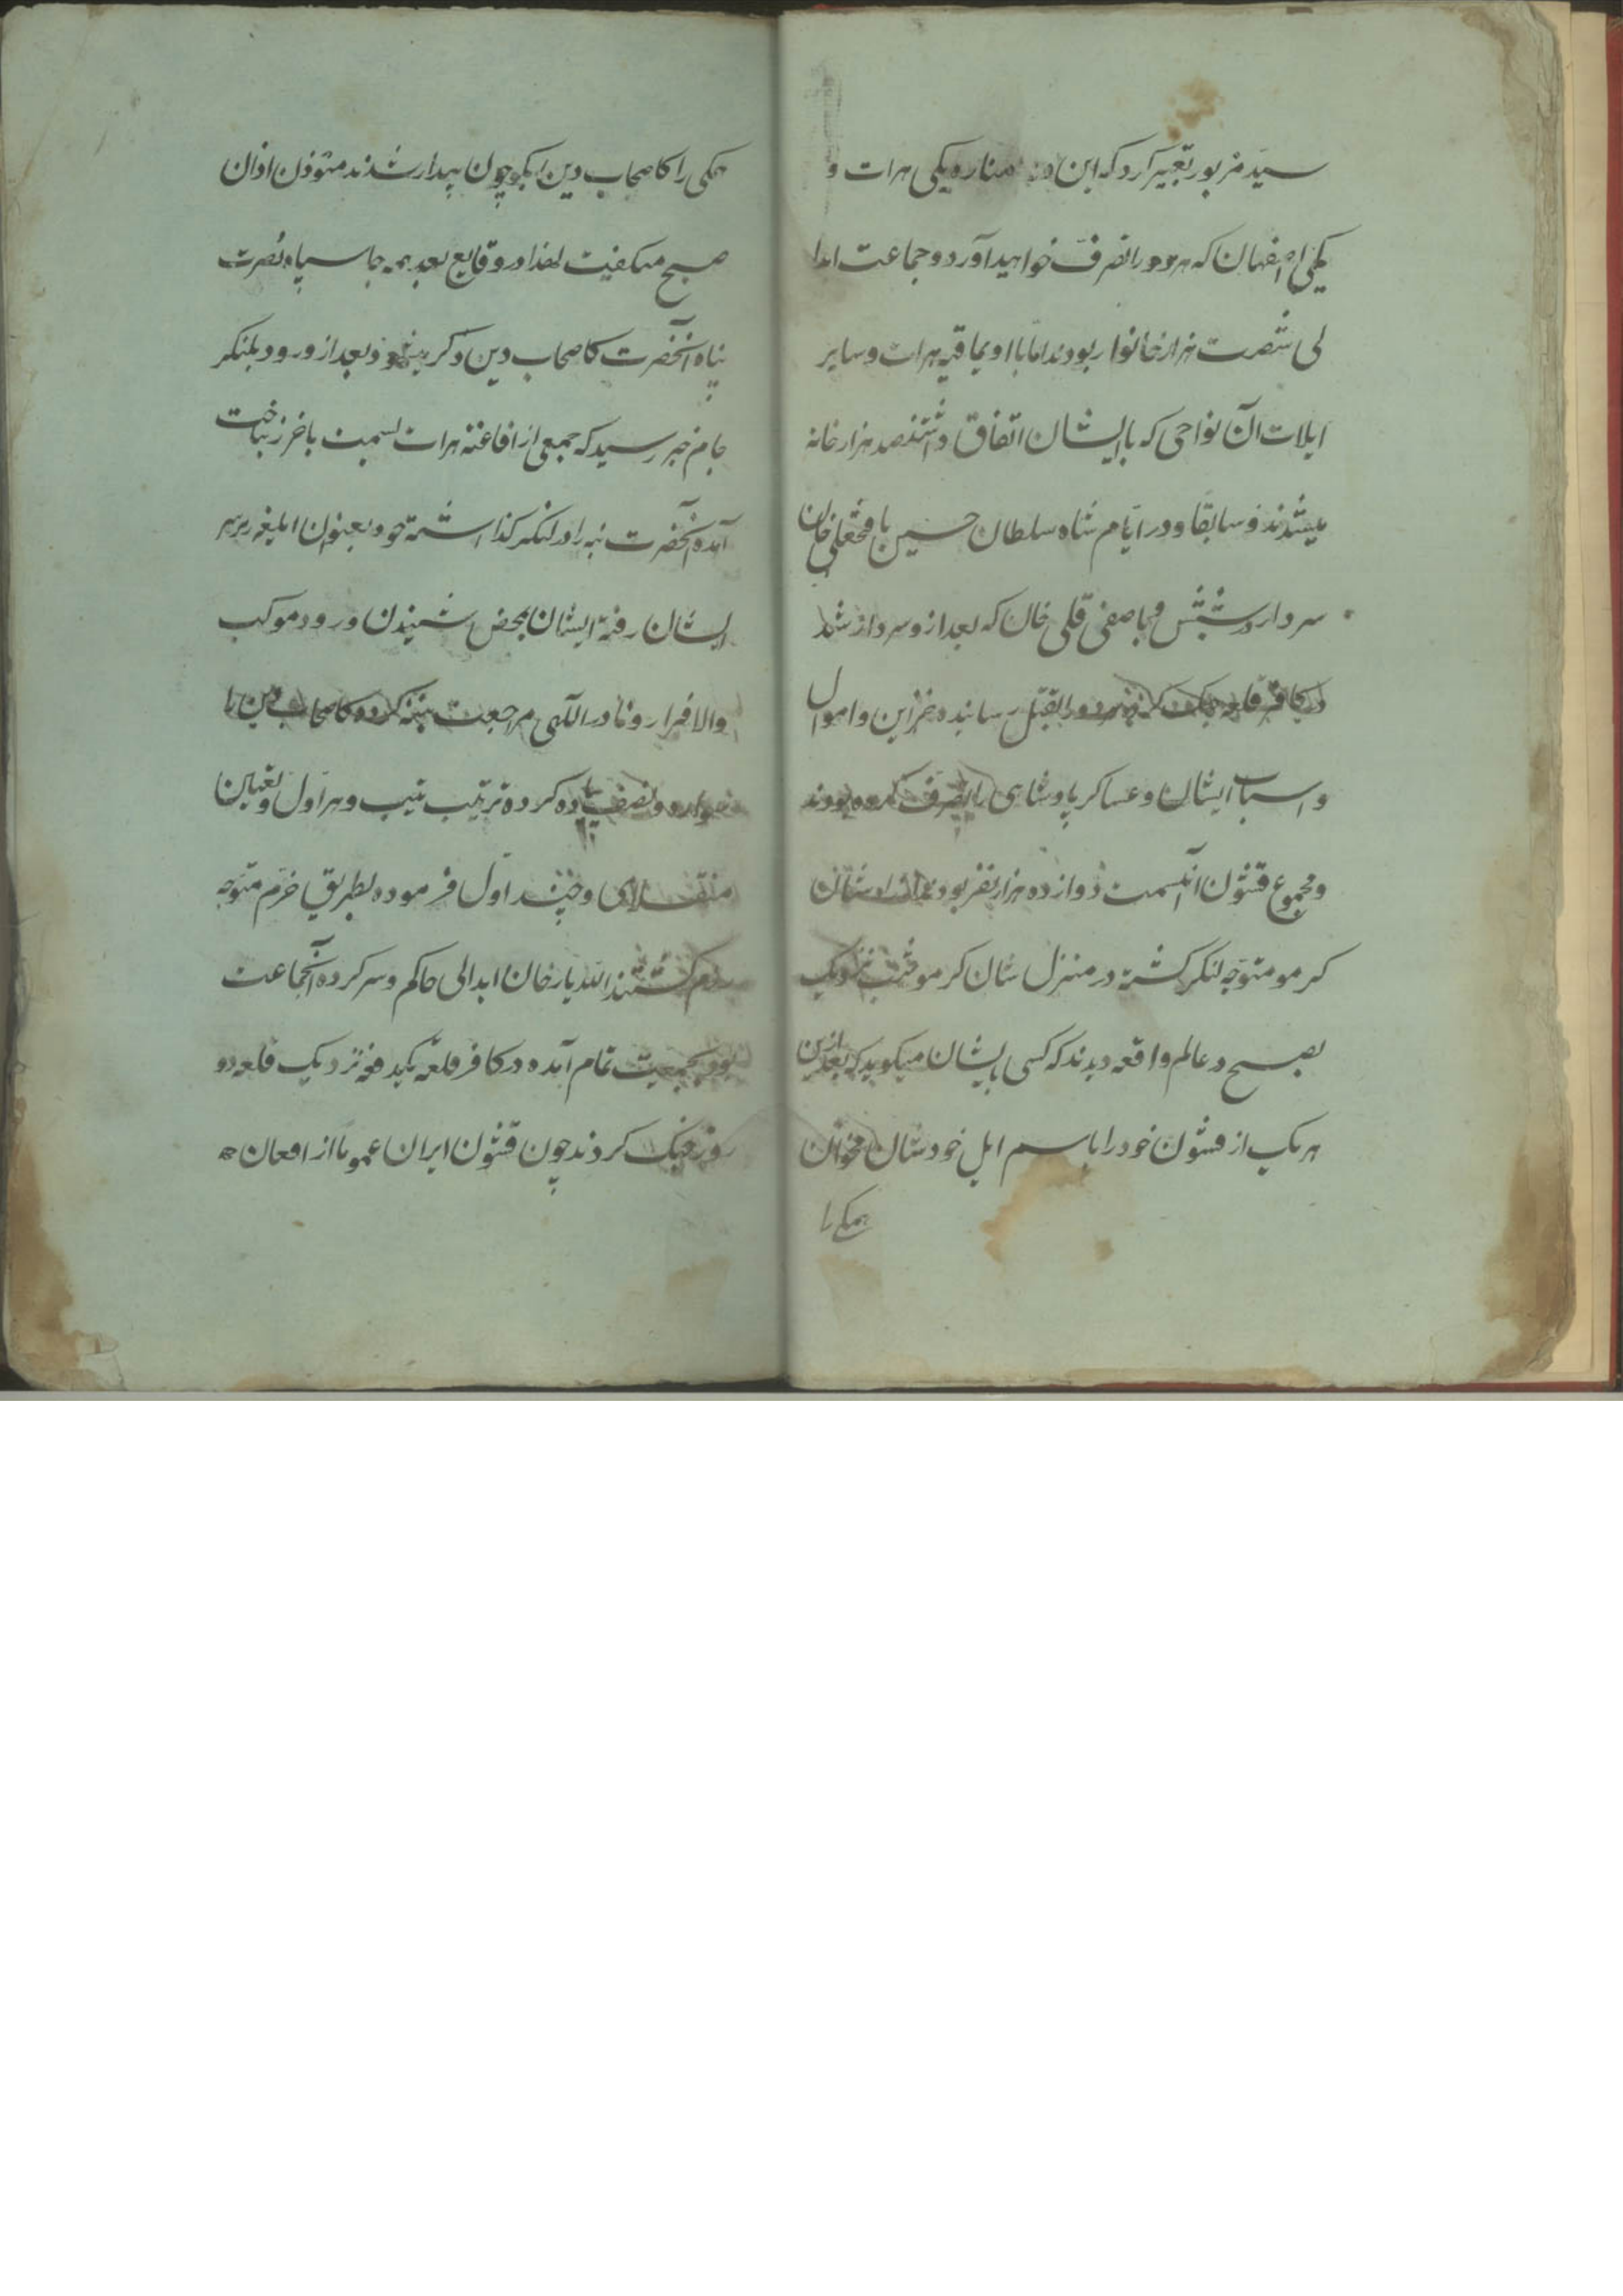 سید مزبور تعبیر کرد که این دو مناره یکی هرات و
یکی اصفهان که هر دو را تصرف خواهید آورد و جماعت ابدا
لی شصت هزار خانوار بودند اما با اویماقیه هرات و سایر
ایلات آن نواحی که با ایشان اتفاق داشتند صد هزار خانه
میشدند و سابقا و در ایام شاه سلطان حسین با فتحعلی خان
سردار و با صفی قلی خان که بعد از و سردار شد
در کافر قلعه جنک کرده هر دو را بقتل رسانیده خزاین و اموال
و اسباب ایشان و عساکر پادشاهی را تصرف کرده بودند
و مجموع قشون آنسمت دوازده هزار نفر بود
کرمو متوجه لنکر کشته در منزل شان کرمو شب نزدیک
بصبح در عالم واقعه دیدند که کسی بایشان میکوید که بعد ازین
هر یک از قشون خود را باسم ایل خودشان مخوان
همکی را
همکی را کاصحاب دین بکو چون بیدار شدند مئوذن اذان
صبح میکفت لهذا در وقایع بعد همه جا سپاه نصرت
پناه آنحضرت کاصحاب دین ذکر میشود و بعد از ورود بلنکر
جام خبر رسید که جمعی از افاغنه هرات بسمت باخرز بتاخت
آمده آنحضرت بنه را در لنکر کذاشته خود بعنوان ایلیغه بر سر
ایشان رفته ایشان بمحض شنیدن ورود موکب
والا فرار و نادر اللهی مراجعت ببنه کرده کاصحاب دین را
سواره و نصف پیاده کرده ترتیب تیپ و هراول و تعیین
منقلای و چنداول فرموده بطریق خرم متوجه
رزم کشتند الله یار خان ابدالی حاکم و سرکرده آنجماعت
بود بجمعیت تمام آمده در کافر قلعه یکدفعه نزدیک قلعه دو
روز جنک کردند چون قشون ایران عموما از افغان